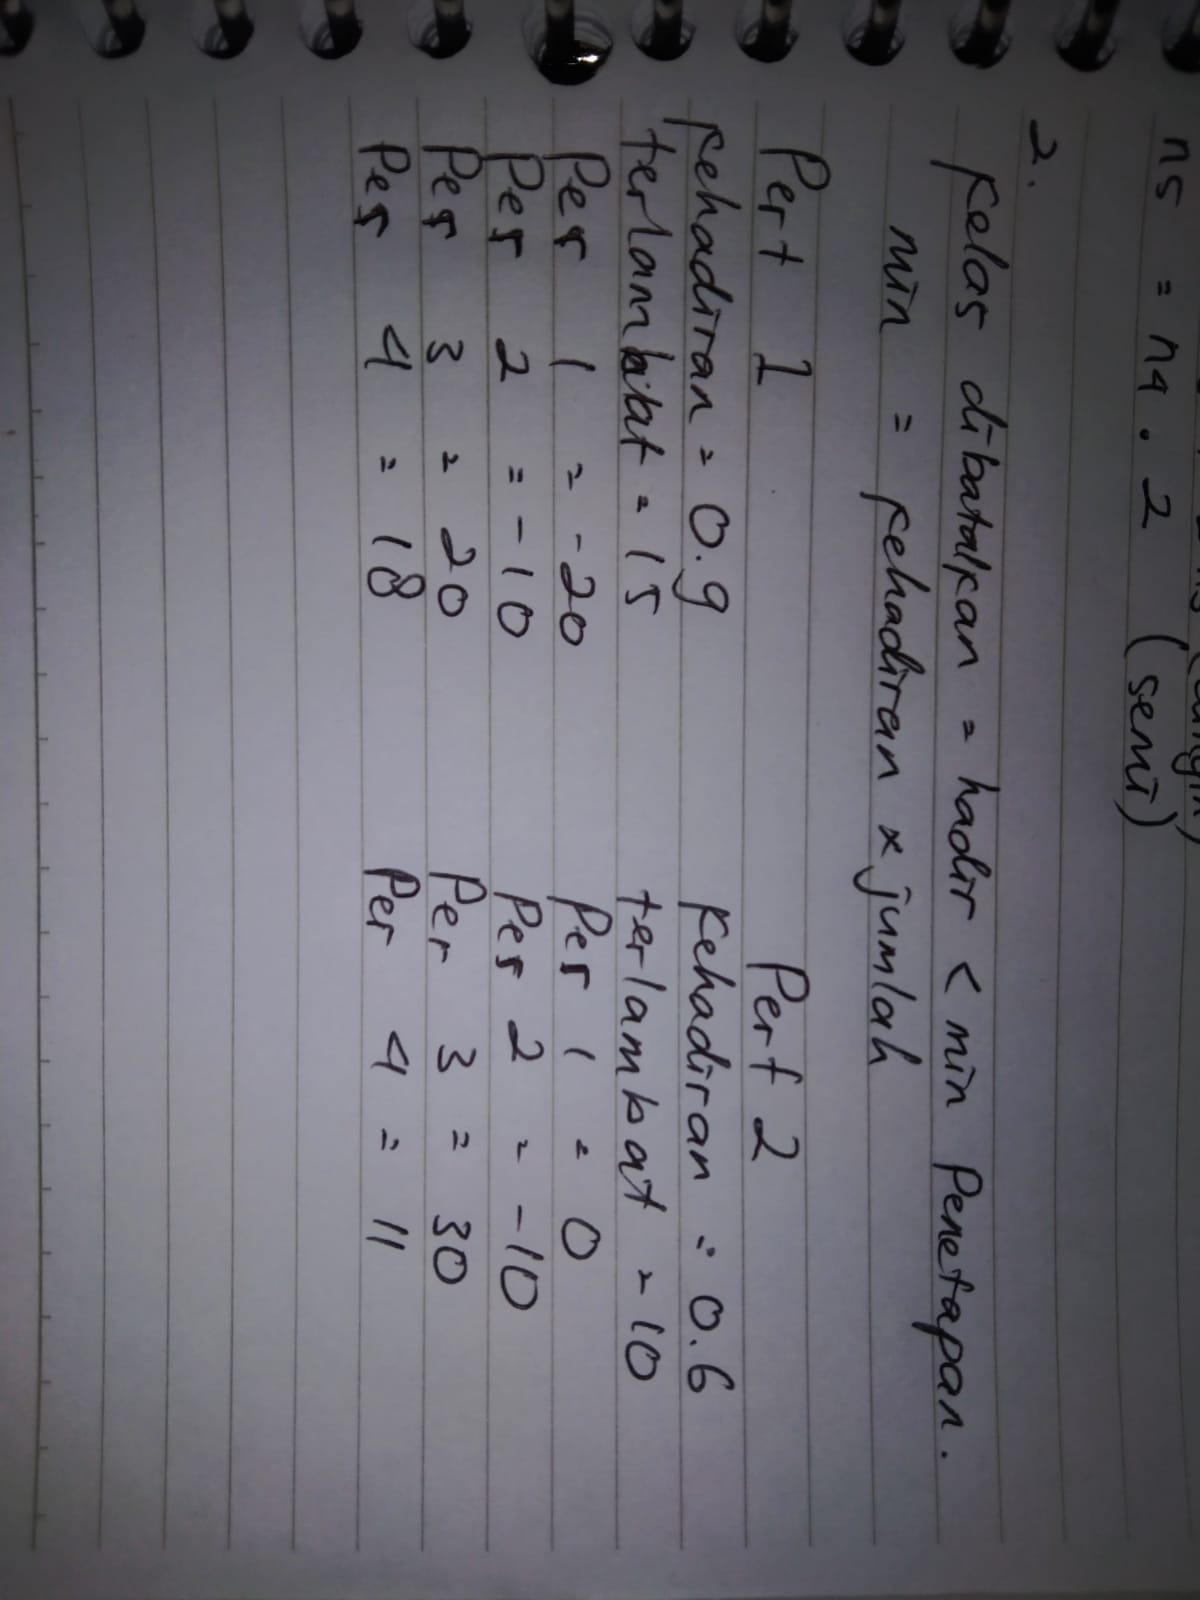 n5 = n4 . 2 (semi)
2.
Kelas dibatalkan = hadir < min Penetapan.
min = kehadiran x jumlah
Pert 1
kehadiran = 0.9
terlambat = 15
Per 1 = -20
Per 2 = -10
Per 3 = 20
Per 4 = 18
Pert 2
Kehadiran = 0.6
terlambat = 10
Per 1 = 0
Per 2 = -10
Per 3 = 30
Per 4 = 11